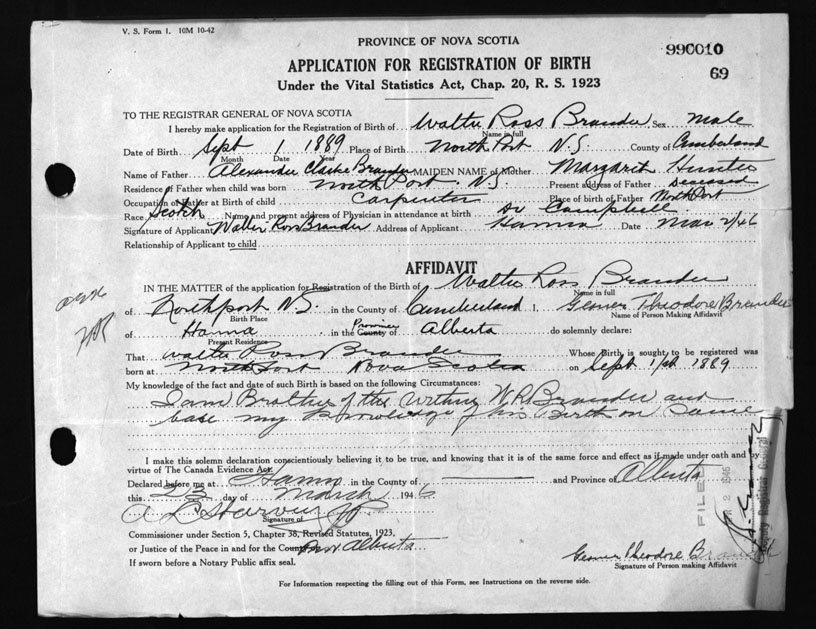 V. S. Form 1. 10M 10-42
PROVINCE OF NOVA SCOTIA
990010
69
APPLICATION FOR REGISTRATION OF BIRTH
Under the Vital Statistics Act, Chap. 20, R. S. 1923
TO THE REGISTRAR GENERAL OF NOVA SCOTIA
I hereby make application for the Registration of Birth of Walter Ross Brander Sex male
Name in full
Date of Birth Sept 1 1889 Place of Birth North Port N.S. County of Cumberland
Month Date Year
Name of Father Alexander Clarke Brander MAIDEN NAME of Mother Margaret Hunter
Residence of Father when child was born North Port N.S. Present address of Father Deceased
Occupation of Father at Birth of child Carpenter Place of birth of Father North Port
Race Scotch Name and present address of Physician in attendance at birth Dr Campbell
Signature of Applicant Walter Ross Brander Address of Applicant Hanna Date Mar 2/46
Relationship of Applicant to child
AFFIDAVIT
IN THE MATTER of the application for Registration of the Birth of Walter Ross Brander
Name in full
of Northport N.S. in the County of Cumberland I, Theodore Brander
Birth Place Name of Person Making Affidavit
of Hanna in the County of Province Alberta do solemnly declare:
Present Residence
That Walter Ross Brander Whose Birth is sought to be registered was
born at North Port Nova Scotia on Sept 1st 1889
My knowledge of the fact and date of such Birth is based on the following Circumstances:
I am Brother of the within W R Brander and
base my knowledge of his Birth on Same
I make this solemn declaration conscientiously believing it to be true, and knowing that it is of the same force and effect as if made under oath and by
virtue of The Canada Evidence Act.
Declared before me at Hanna in the County of and Province of Alberta
this 23 day of March 1946
Signature of
Commissioner under Section 5, Chapter 38, Revised Statutes, 1923,
or Justice of the Peace in and for the County Prov Alberta
If sworn before a Notary Public affix seal.
Theodore Brander
Signature of Person making Affidavit
For Information respecting the filling out of this Form, see Instructions on the reverse side.
FILED